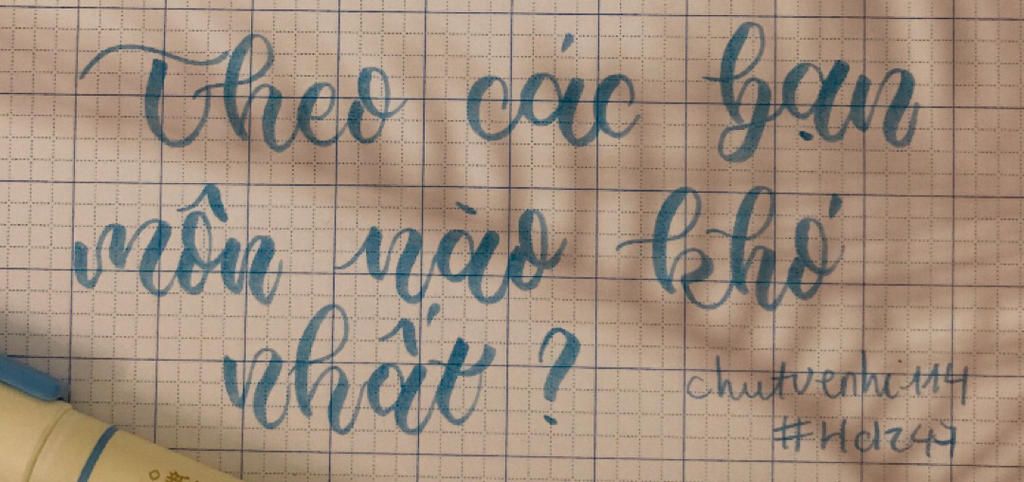 Theo các bạn
môn nào khó
nhất ?
chutvenhi114
#Hdz47